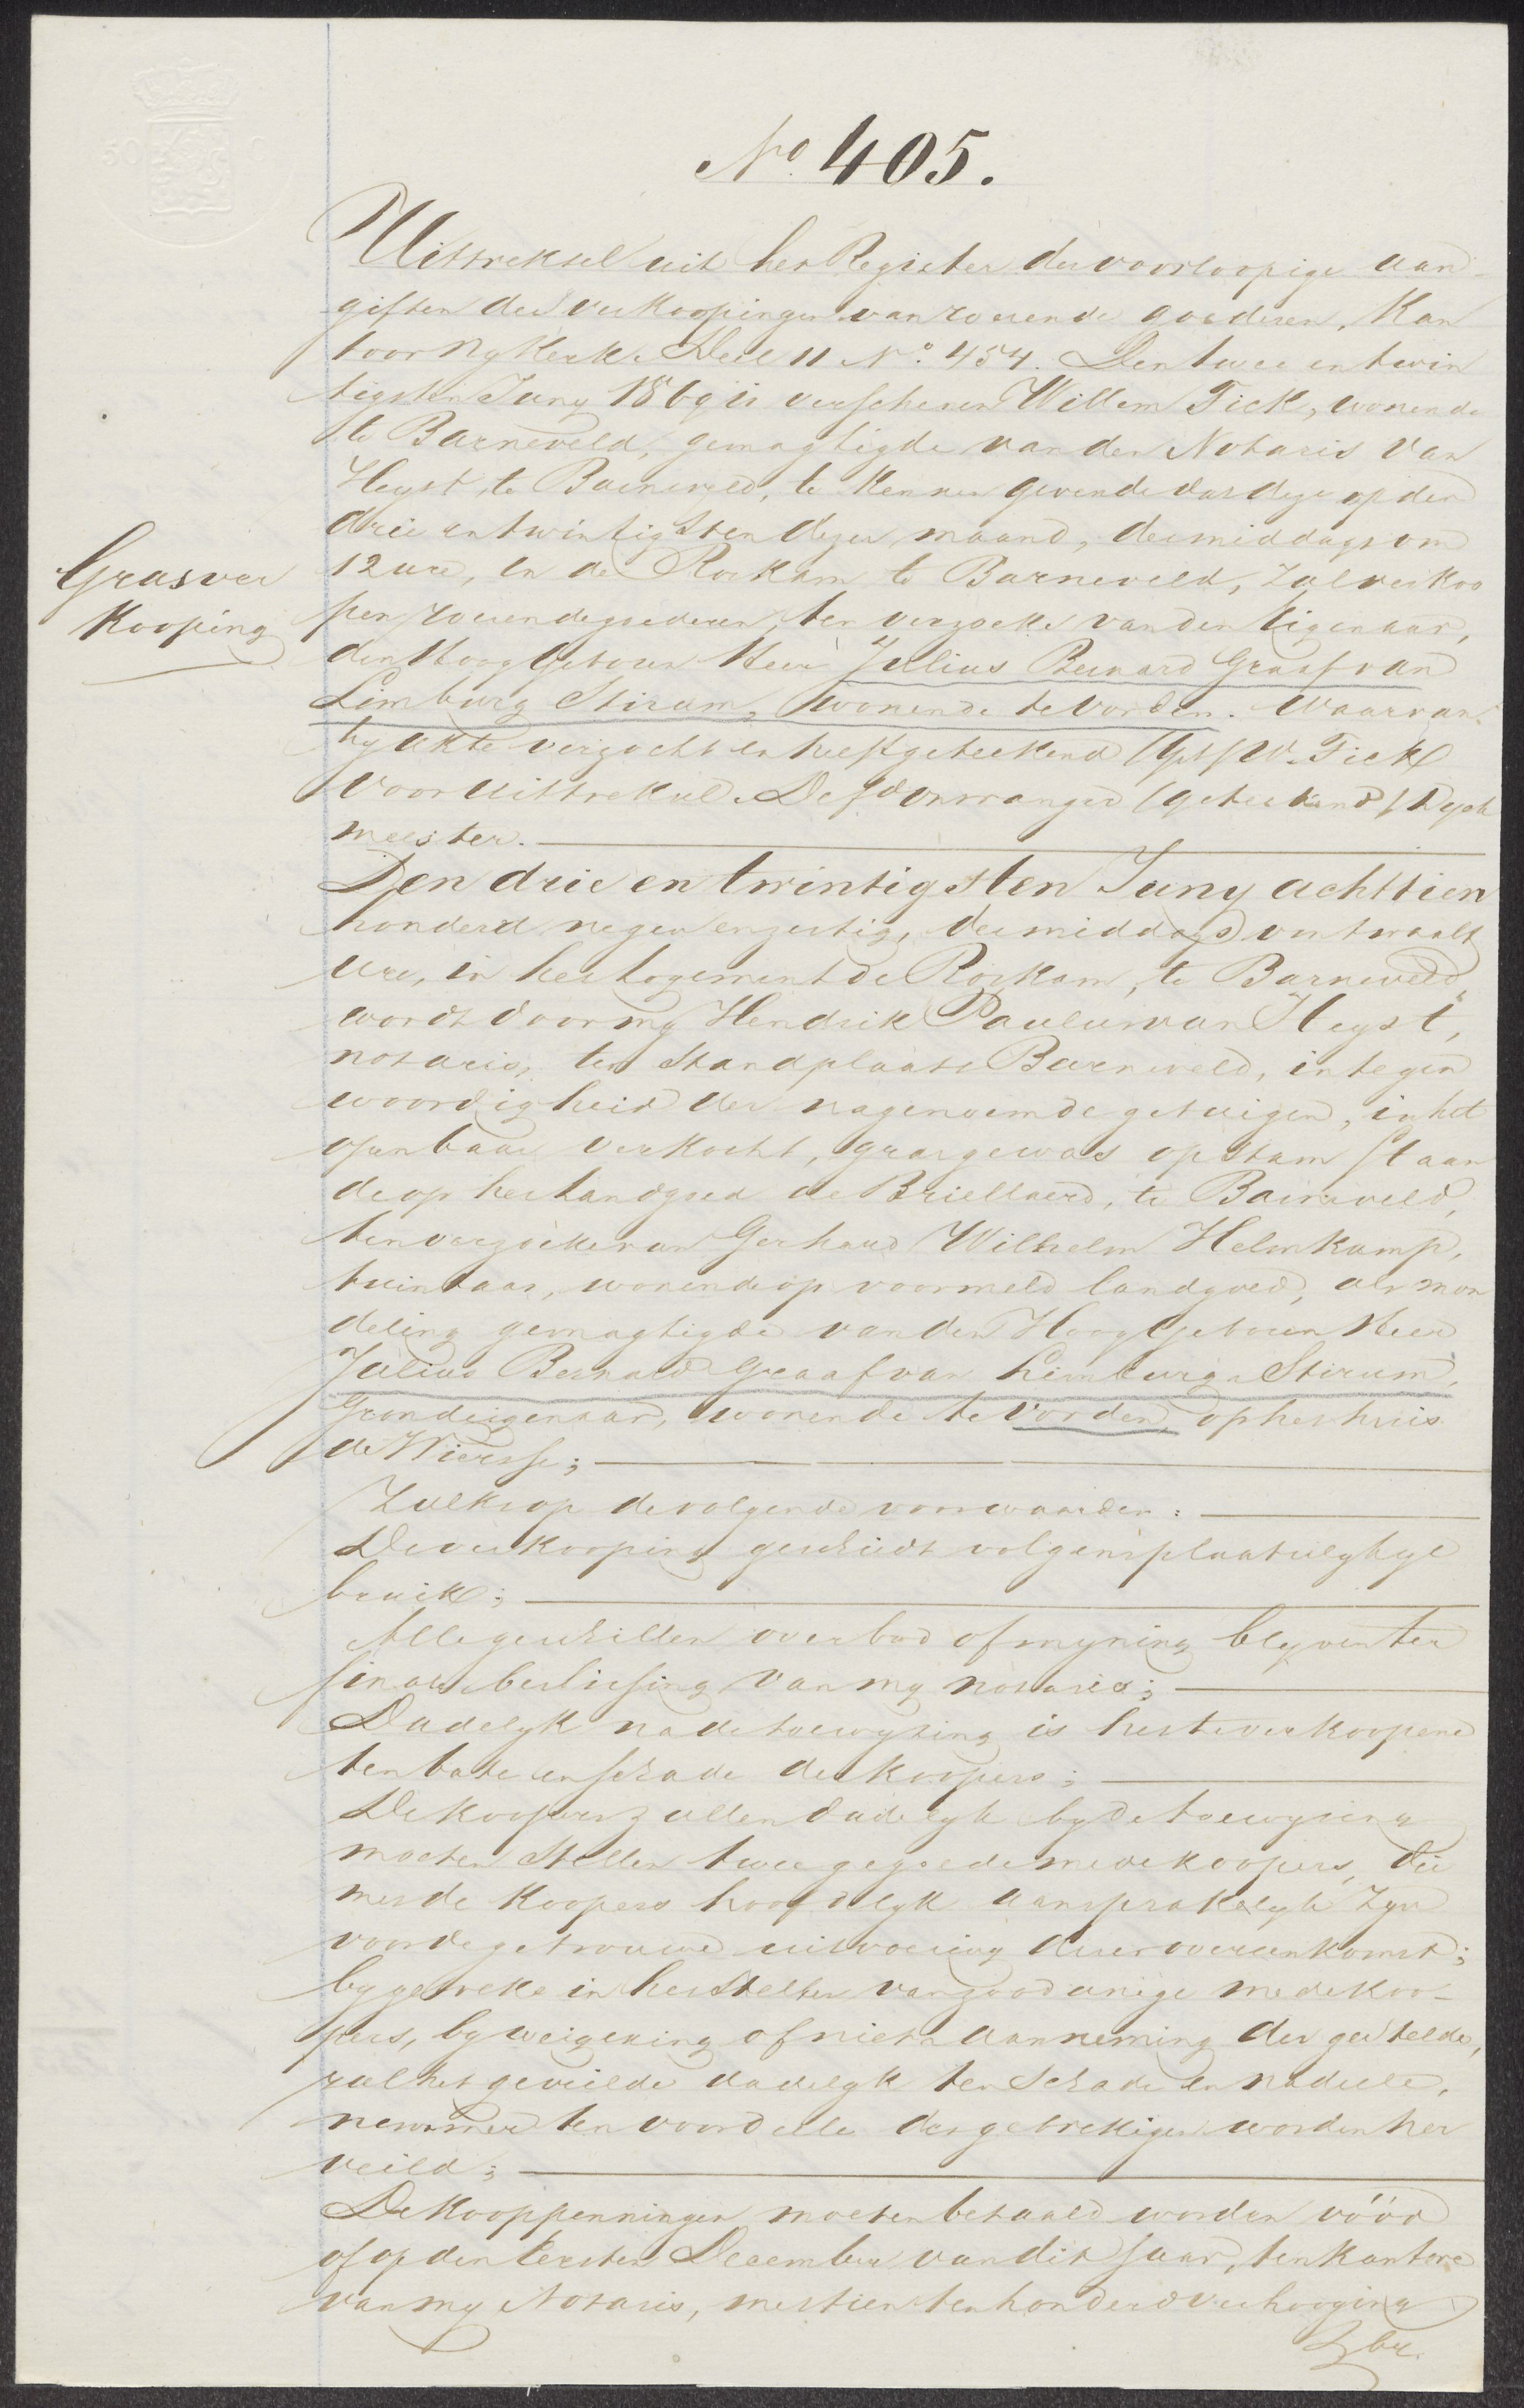 No. 405.
Uittreksel uit het Register der voorloopige aan-
giften der verkoopingen van roerende goederen, Kan
toor Nykerk. Deel 11 No. 454. Den twee en twin
tigsten Juny 1869 is verschenen Willem Fick, wonende
te Barneveld, gemagtigde van den Notaris van
Heyst te Barneveld, te kennen gevende dat deze op den
drie en twintigsten dezer maand, des middags om
Grasver
kooping
12 ure, in de Roskam te Barneveld, zal verkoo
pen roerende goederen, ten verzoeke van den Eigenaar,
den Hoog Geboren Heer Julius Bernard Graaf van
Limburg Stirum, wonende te Vorden. Waarvan
hy akte verzocht en heeft geteekend (Get) W. Fick
Voor Uittreksel. De Ontvanger (geteekend)
meester.
Den drie en twintigsten Juny achttien
honderd negen en zestig, des middags om twaalf
ure, in het logement de Roskam, te Barneveld,
wordt door my Hendrik Paulus van Heyst,
notaris, ter standplaats Barneveld, in tegen
woordigheid der nagenoemde getuigen, in het
openbaar verkocht, grasgewas op stam staan
de op het landgoed de Briellaerd, te Barneveld,
ten verzoeke van Gerhard Wilhelm Helmkamp,
tuinbaas, wonende op voormeld landgoed, als mon
deling gemagtigde van den Hoog Geboren Heer
Julius Bernard Graaf van Limburg Stirum,
Grondeigenaar, wonende te Vorden, op het huis
de Wiersse;
Zulks op de volgende voorwaarden:
De verkooping geschiedt volgens plaatselyk ge
bruik;
Alle geschillen over bod of myning blyven ter
finale beslissing van my notaris;
Dadelyk na de toewyzing is het te verkoopene
ten bate en schade der koopers;
De koopers zullen dadelyk by de toewyzing
moeten stellen twee gegoede medekoopers, die
met de koopers hoofdelyk aansprakelyk zyn
voor de getrouwe uitvoering dezer overeenkomst;
by gebreke in het stellen van zoodanige medekoo-
pers, by weigering of niet aanneming der gestelde,
zal het geveilde dadelyk ten schade en nadeele,
nimmer ten voordeele des gebrekigen worden her
veild;
De kooppenningen moeten betaald worden vóór
of op den Eersten December van dit jaar, ten kantore
van my Notaris, met tien ten honderd verhooging